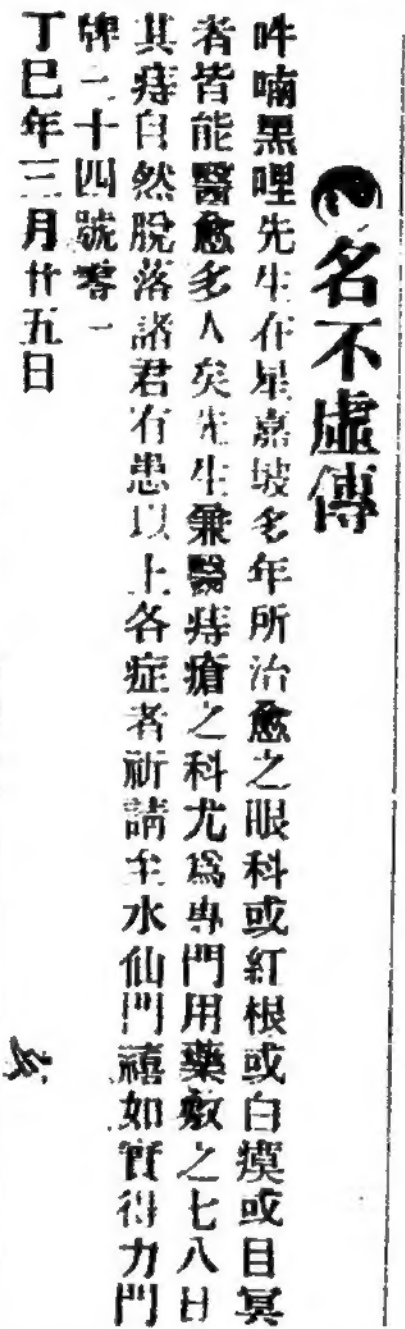 名不虛傳
吽喃黑哩先生在星嘉坡多年所治愈之眼科或紅根或白瘼或目冥
者皆能醫愈多人矣先生兼醫痔瘡之科尤爲專門用藥敷之七八日
其痔自然脫落諸君有患以上各症者祈請至水仙門禧如實得力門
牌二十四號零一
丁巳年三月廿五日